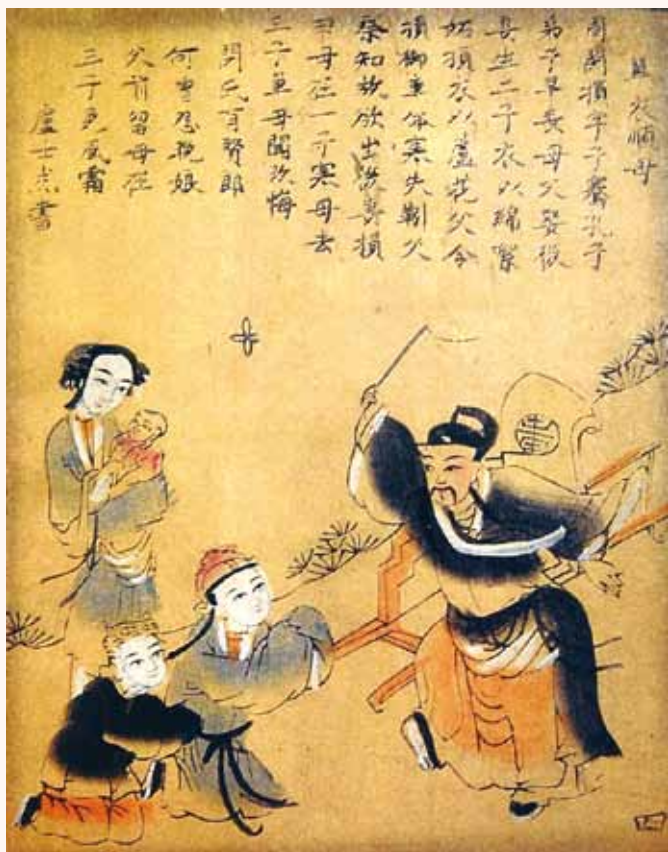 單衣順母
周閔損字子騫孔子
弟子早喪母父娶後
妻生二子衣以綿絮
妬損衣以蘆花父令
損御車体寒失靷父
察知故欲出後妻損
曰母在一子寒母去
三子單母聞改悔
閔氏有賢郎
何曾怨晚娘
父前留母在
三子免風霜
盧士書